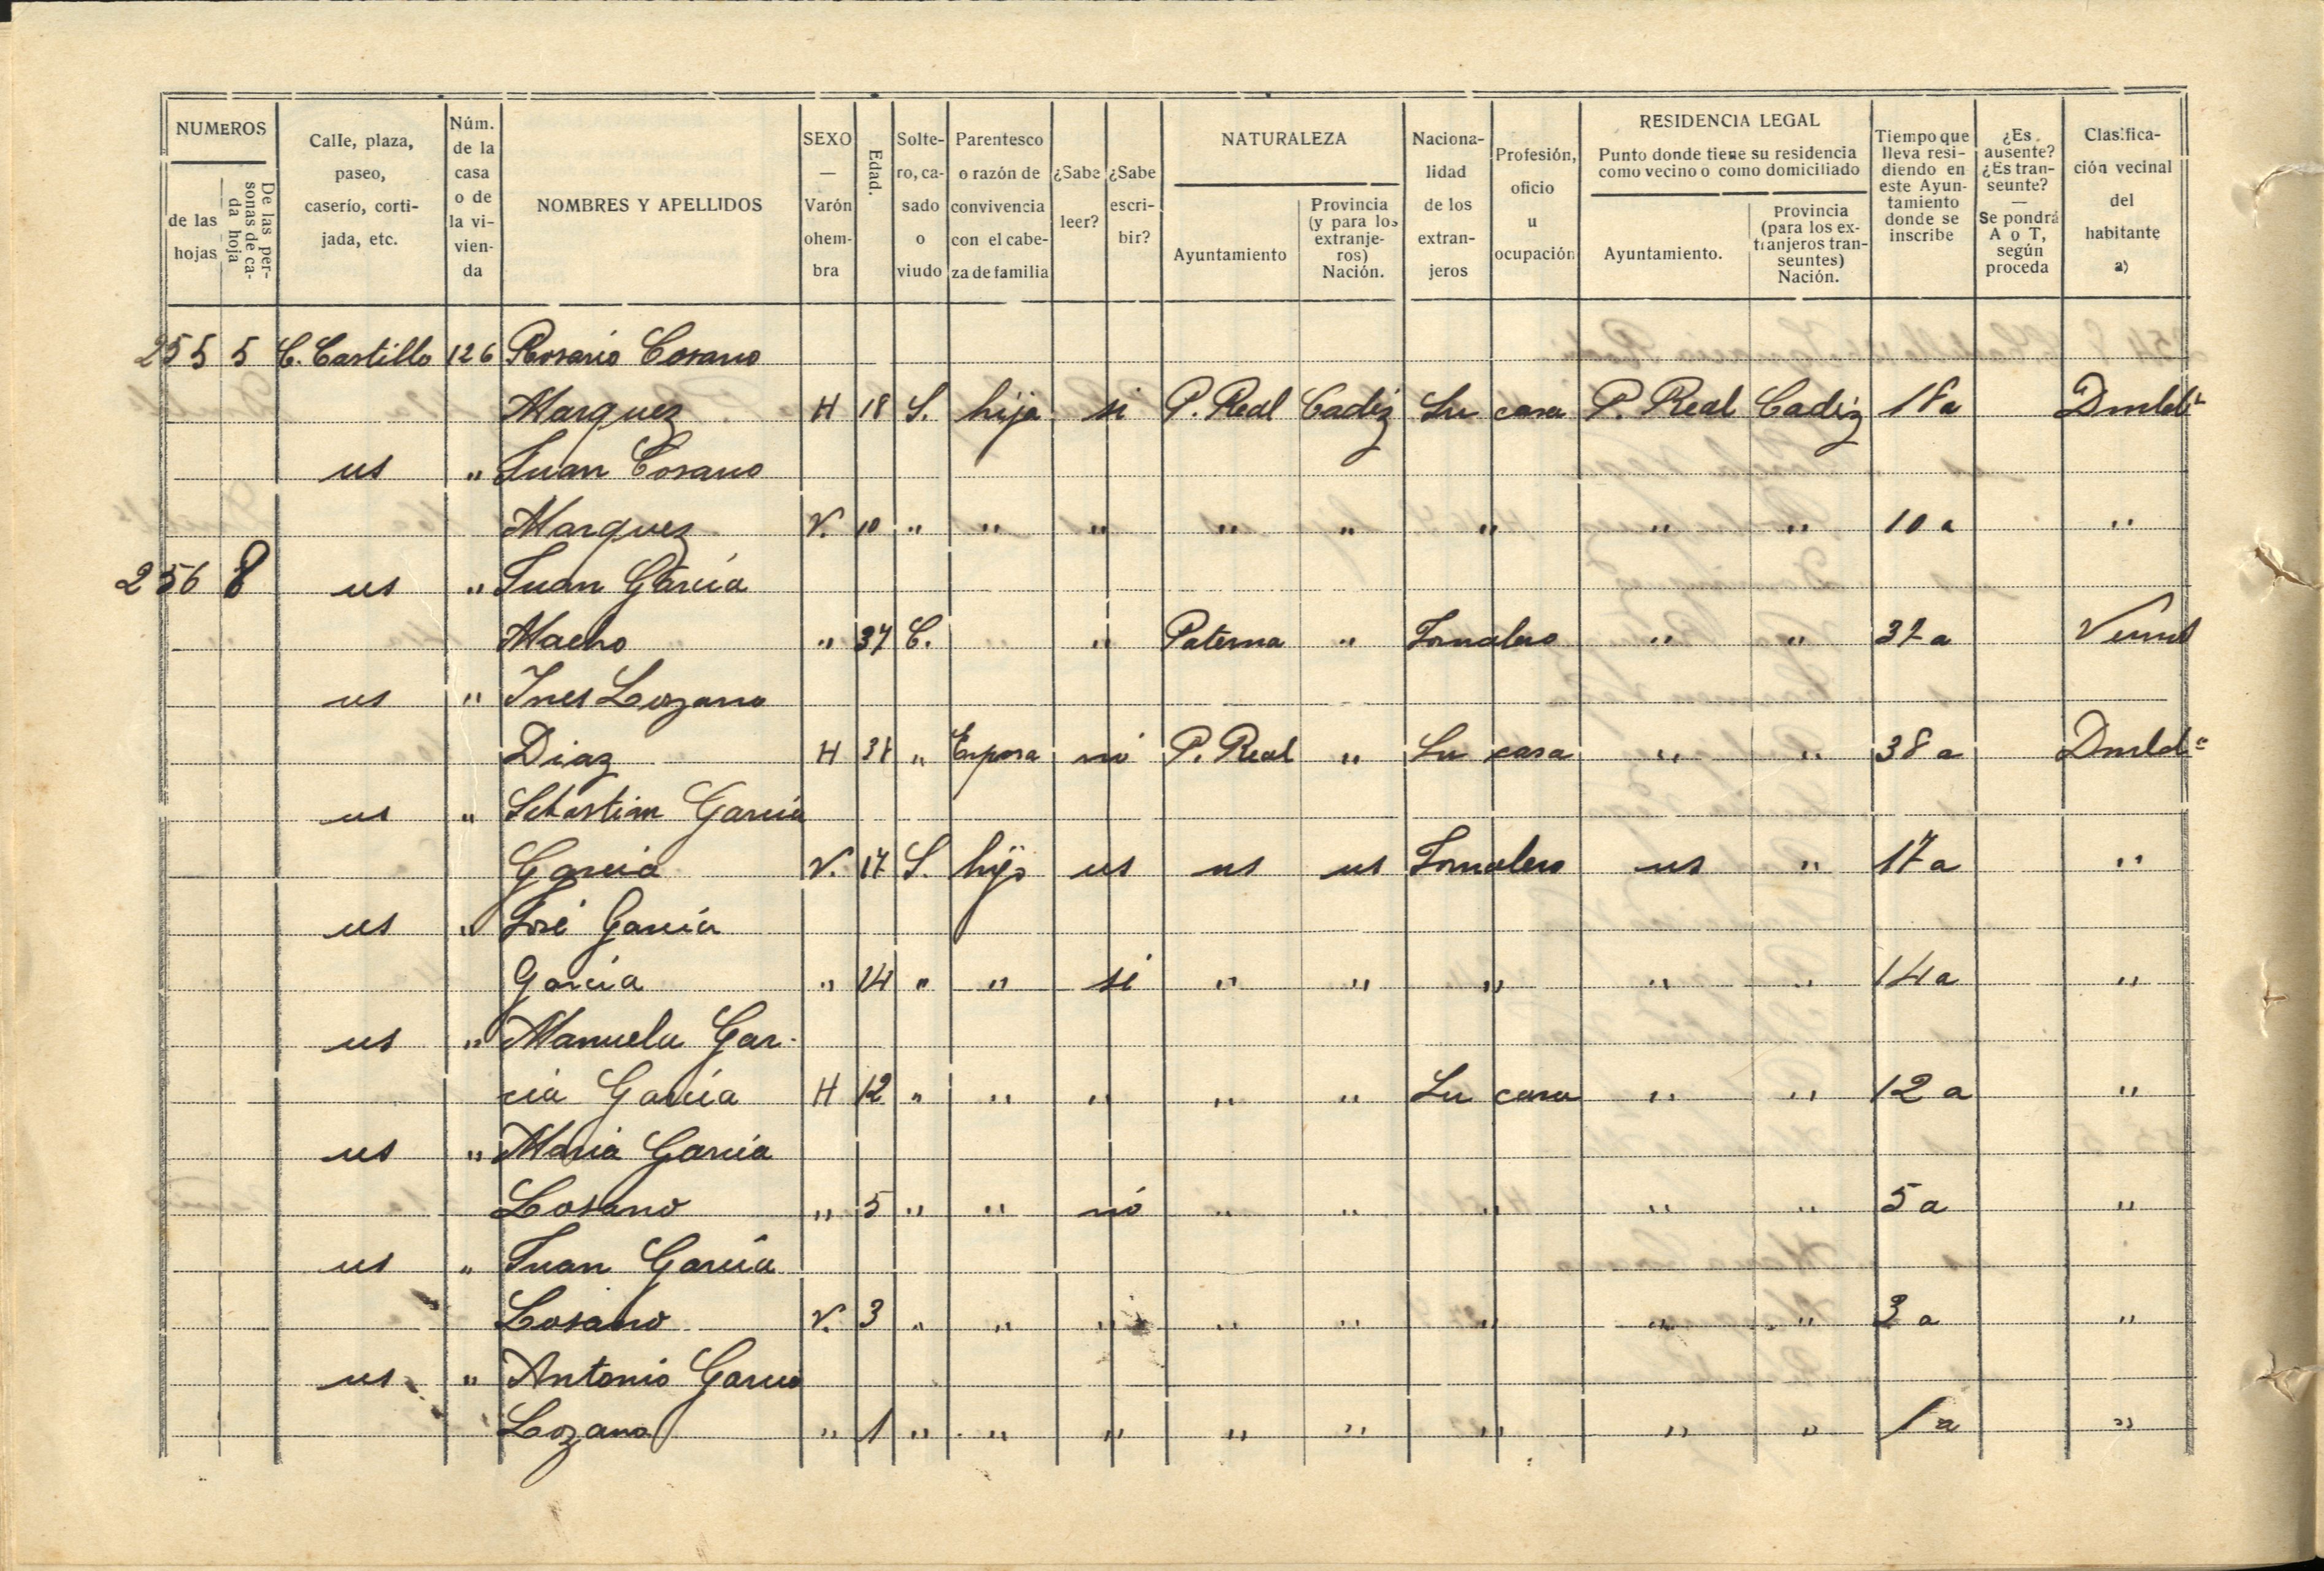 NUMEROS
de las hojas
De las personas de cada hoja
Calle, plaza, paseo, caserío, cortijada, etc.
Núm. de la casa o de la vivienda
NOMBRES Y APELLIDOS
SEXO — Varón ohembra
Edad.
Soltero, casado o viudo
Parentesco o razón de convivencia con el cabeza de familia
¿Sabe leer?
¿Sabe escribir?
NATURALEZA
Ayuntamiento
Provincia (y para los extranjeros) Nación.
Nacionalidad de los extranjeros
Profesión, oficio u ocupación
RESIDENCIA LEGAL
Punto donde tiene su residencia como vecino o como domiciliado
Ayuntamiento.
Provincia (para los extranjeros transeuntes) Nación.
Tiempo que lleva residiendo en este Ayuntamiento donde se inscribe
¿Es ausente? ¿Es transeunte? — Se pondrá A o T, según proceda
Clasificación vecinal del habitante a)
255 5 C. Castillo 126 Rosario Cosano
Marquez H 18 S. hija si P. Real Cadiz Su casa P. Real Cadiz 18 a Dmldª
us " Juan Cosano
Marquez V. 10 " " " " " " " " 10 a "
256 8 us " Juan Garcia
Macho " 37 C. " " Paterna " Jornalero " " 37 a
us " Ines Lozano
Diaz H 38 " Esposa nó P. Real " Su casa " " 38 a Dmldª
us " Sebastian Garcia
Garcia V. 17 S. hijo us us us Jornalero us " 17 a "
us " José Garcia
Garcia " 14 " " si " " " " " 14 a "
us " Manuela Gar-
cia Garcia H 12 " " " " " Su casa " " 12 a "
us " Maria Garcia
Losano " 5 " " nó " " " " " 5 a "
us " Juan Garcia
Losano V. 3 " " " " " " " " 3 a "
us " Antonio Garcia
Lozano " 1 " " " " " " " " 1 a "